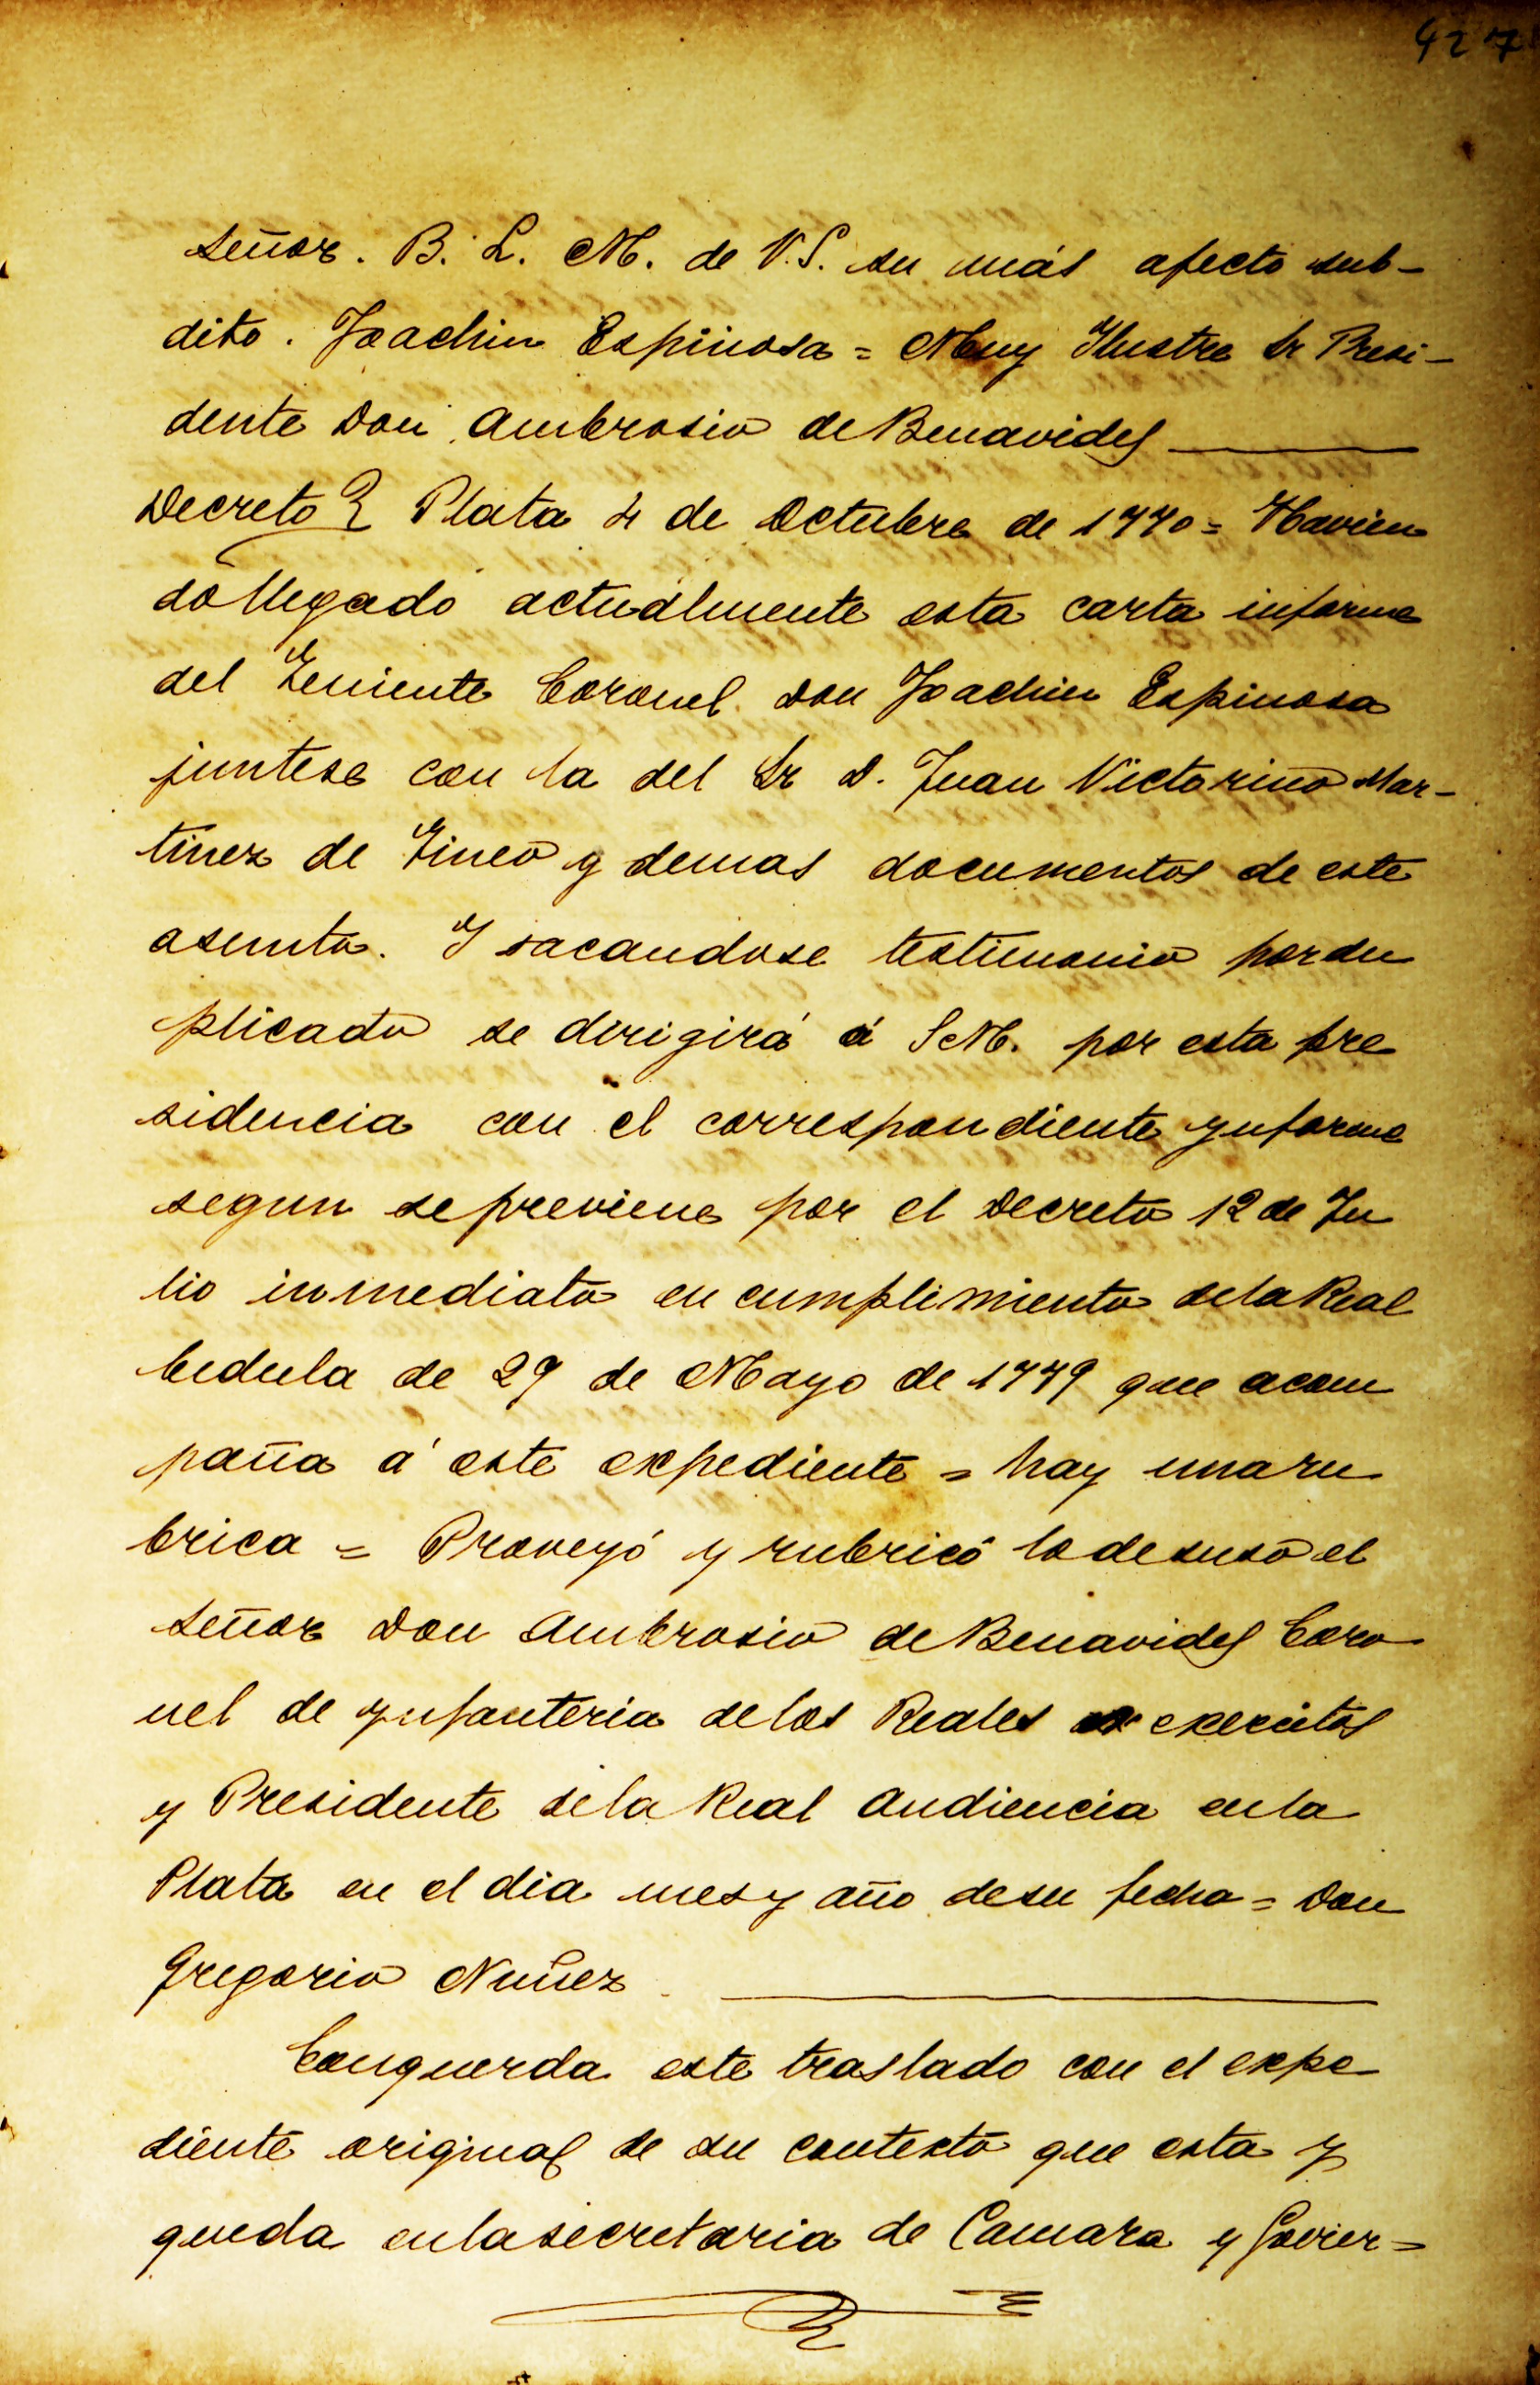 427
señor. B. L. M. de V.S. su más afecto sub-
dito. Joachin Espinosa = Muy Ilustre Sr Presi-
dente Don Ambrosio de Benavides
Decreto Plata 4 de Octubre de 1770 = Havien
do llegado actualmente esta carta informe
del Teniente Coronel Don Joachin Espinosa
juntese con la del Sr D. Juan Victorino Mar-
tinez de Tineo y demas documentos de este
asunto. Y sacandose testimonio por du
plicado se dirigirá á S M. por esta pre
sidencia con el correspondiente ynforme
segun se previene por el Decreto 12 de Ju
lio inmediato en cumplimiento de la Real
Cedula de 29 de Mayo de 1779 que acom
paña á este expediente = hay una ru
brica = Proveyó y rubricó lo de suso el
señor Don Ambrosio de Benavides Coro
nel de ynfanteria de los Reales exercitos
y Presidente de la Real Audiencia en la
Plata en el dia mes y año de su fecha = Don
Gregorio Nuñez
Conquerda este traslado con el expe
diente original de su contexto que esta y
queda en la secretaria de Camara y Govier=